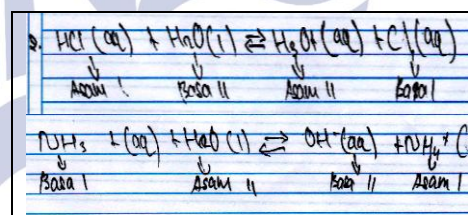 2. HCl (aq) + H2O (l) ⇌ H3O+ (aq) + Cl (aq)
Asam I Basa II Asam II Basa I
NH3 + (aq) + H2O (l) ⇌ OH- (aq) + NH4+ (
Basa I Asam II Basa II Asam I